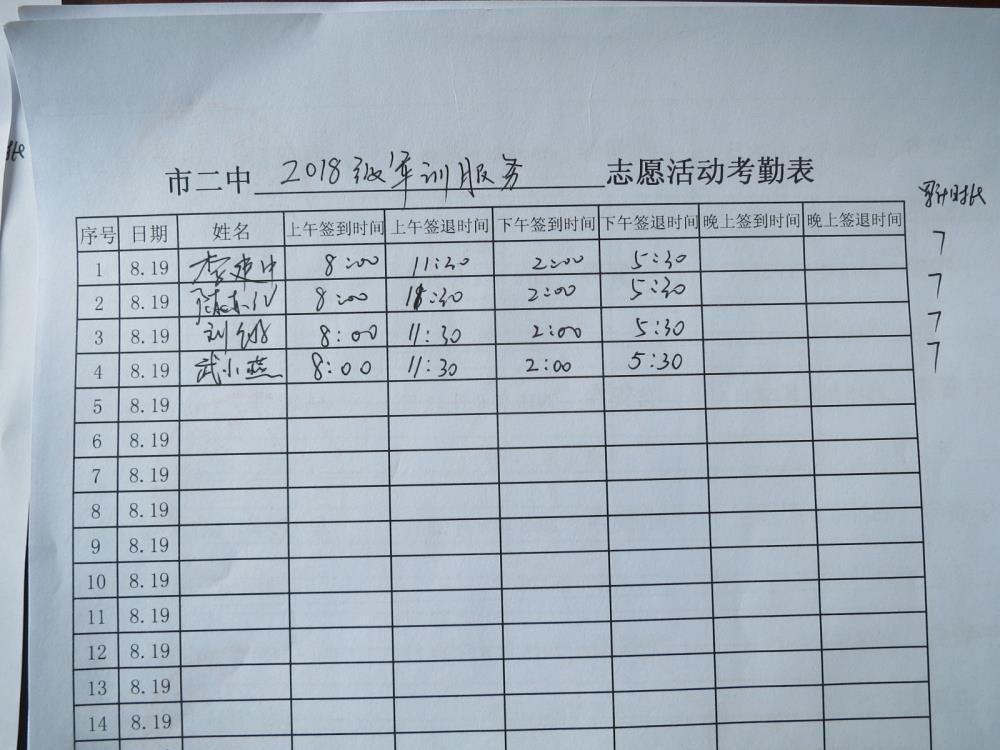 市二中 2018级军训服务 志愿活动考勤表
累计时长
序号 日期 姓名 上午签到时间 上午签退时间 下午签到时间 下午签退时间 晚上签到时间 晚上签退时间
1 8.19 李建中 8:00 11:30 2:00 5:30 7
2 8.19 8:00 11:30 2:00 5:30 7
3 8.19 刘 8:00 11:30 2:00 5:30 7
4 8.19 武小燕 8:00 11:30 2:00 5:30 7
5 8.19
6 8.19
7 8.19
8 8.19
9 8.19
10 8.19
11 8.19
12 8.19
13 8.19
14 8.19